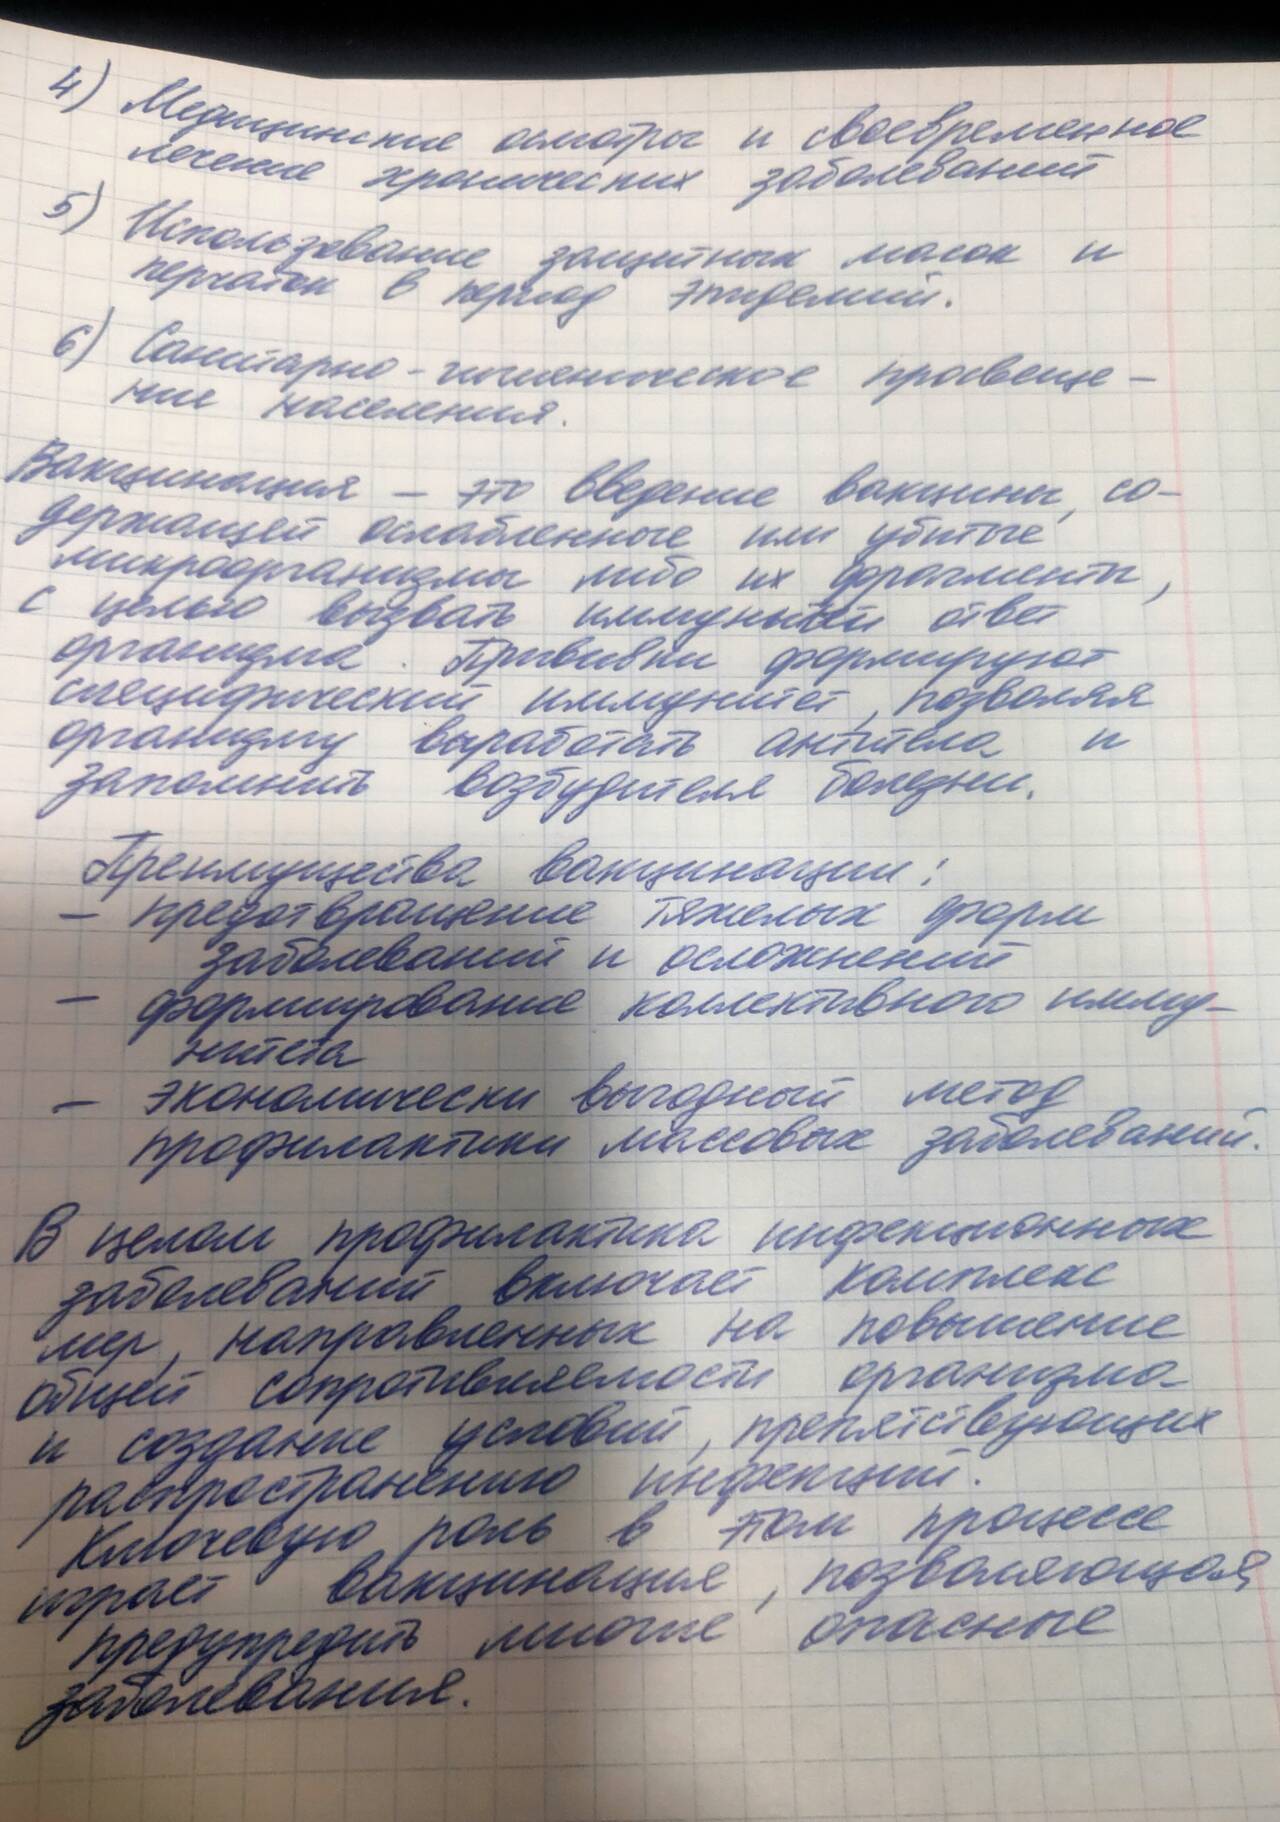 4) Медицинские осмотры и своевременное
лечение хронических заболеваний
5) Использование защитных масок и
перчаток в период эпидемий.
6) Санитарно-гигиеническое просвеще-
ние населения.
Вакцинация - это введение вакцины, со-
держащей ослабленные или убитые
микроорганизмы либо их фрагменты,
с целью вызвать иммунный ответ
организма. Прививки формируют
специфический иммунитет, позволяя
организму выработать антитела и
запомнить возбудителя болезни.
Преимущества вакцинации:
- предотвращение тяжелых форм
заболеваний и осложнений
- формирование коллективного имму-
нитета
- экономически выгодный метод
профилактики массовых заболеваний.
В целом профилактика инфекционных
заболеваний включает комплекс
мер, направленных на повышение
общей сопротивляемости организма
и создание условий, препятствующих
распространению инфекций.
Ключевую роль в этом процессе
играет вакцинация, позволяющая
предупредить многие опасные
заболевания.